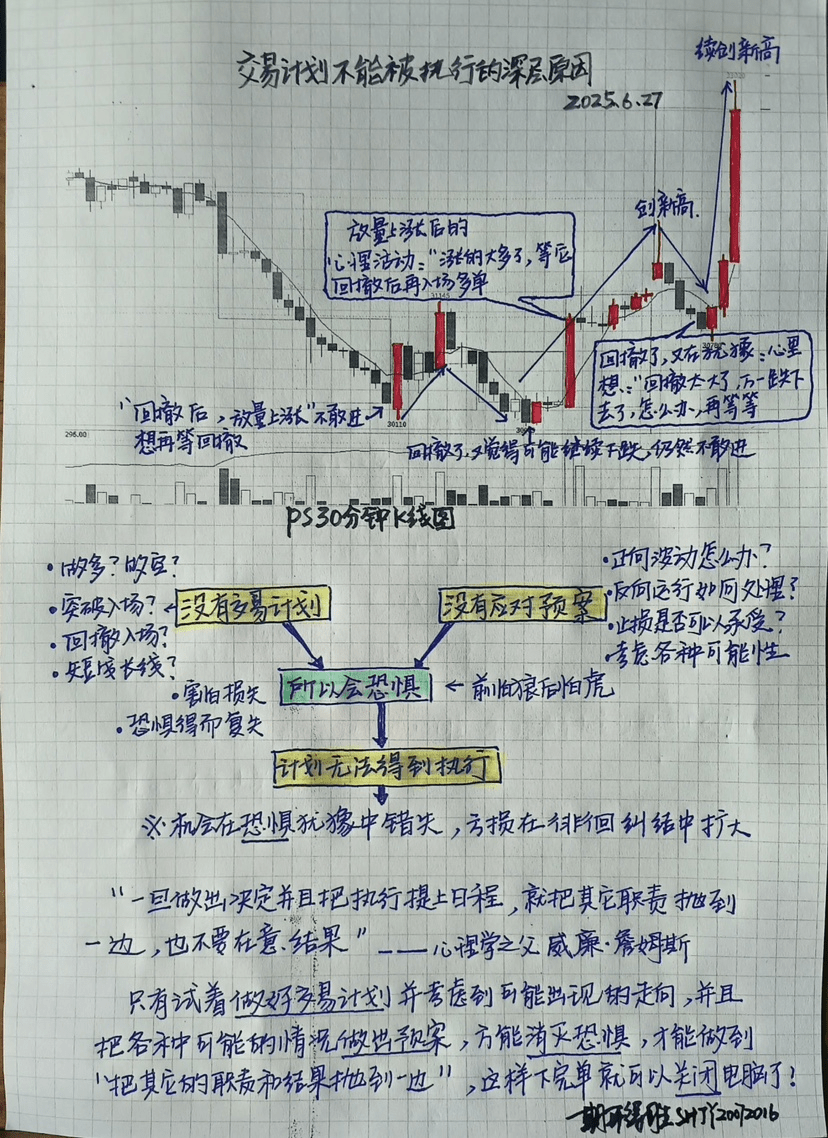 续创新高
交易计划不能被执行的深层原因
2025.6.27
创新高.
放量上涨后的
心理活动:"涨的太多了,等它
回撤后再入场多单
回撤了,又在犹豫:心里
想:"回撤太大了,万一跌下
去了,怎么办,再等等
"回撤后,放量上涨"不敢进→
想再等回撤
30110
296.00
回撤了又觉得可能继续下跌,仍然不敢进
PS30分钟K线图
·做多?做空?
·突破入场?
·回撤入场?
·短或长线?
没有交易计划
没有应对预案
·正向波动怎么办?
·反向运行如何处理?
·止损是否可以承受?
·考虑各种可能性
·害怕损失
·恐惧得而复失
所以会恐惧
←前怕狼后怕虎
计划无法得到执行
※机会在恐惧犹豫中错失,亏损在徘徊纠结中扩大
"一旦做出决定并且把执行提上日程,就把其它职责抛到
一边,也不要在意结果"——心理学之父威廉·詹姆斯
只有试着做好交易计划并考虑到可能出现的走向,并且
把各种可能的情况做出预案,方能消灭恐惧,才能做到
"把其它的职责和结果抛到一边",这样下完单就可以关闭电脑了!
SHJY20072016